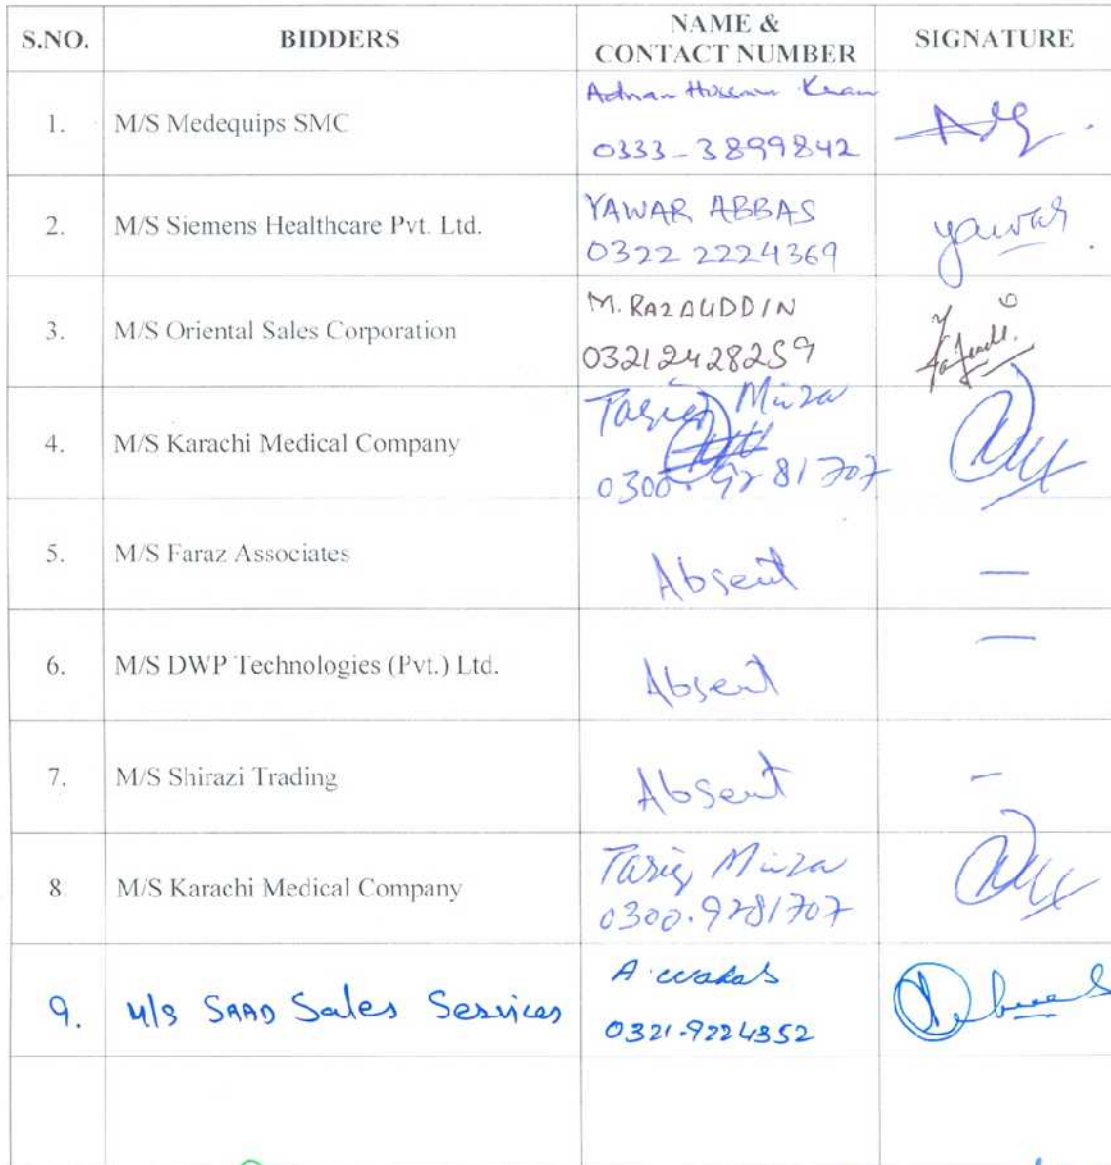 S.NO. BIDDERS NAME & CONTACT NUMBER SIGNATURE
1. M/S Medequips SMC Adnan Hussain Khan
0333-3899842
2. M/S Siemens Healthcare Pvt. Ltd. YAWAR ABBAS yawar
0322 2224369
3. M/S Oriental Sales Corporation M. RAZAUDDIN
03212428259
4. M/S Karachi Medical Company Tariq Mirza
0300.9281707
5. M/S Faraz Associates Absent —
6. M/S DWP Technologies (Pvt.) Ltd. Absent —
7. M/S Shirazi Trading Absent —
8 M/S Karachi Medical Company Tariq Mirza
0300.9281707
9. M/s SAAD Sales Services A. wakas
0321-9224352